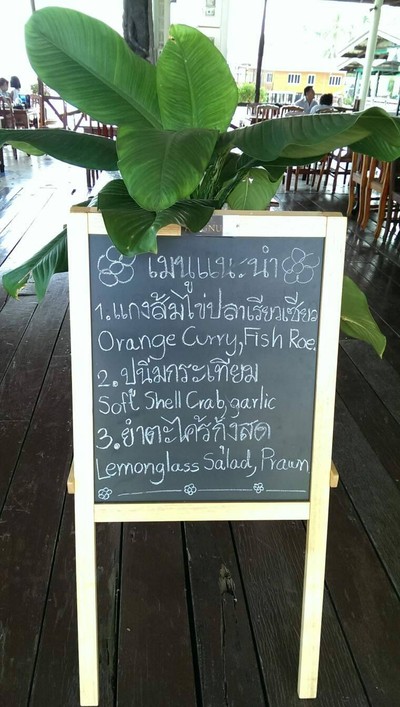 เมนูแนะนำ
1.แกงส้มไข่ปลาเรียวเซียว
Orange Curry, Fish Roe.
2.ปูนิ่มกระเทียม
Soft Shell Crab, garlic
3.ยำตะไคร้กุ้งสด
Lemonglass Salad, Prawn